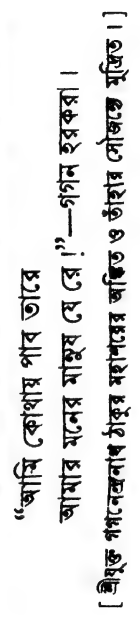 “আমি কোথায় পাব তারে
আমার মনের মানুষ যে রে!”—গগন হরকরা।
[ শ্রীযুক্ত গগনেন্দ্রনাথ ঠাকুর মহাশয়ের অঙ্কিত ও তাঁহার সৌজন্যে মুদ্রিত। ]